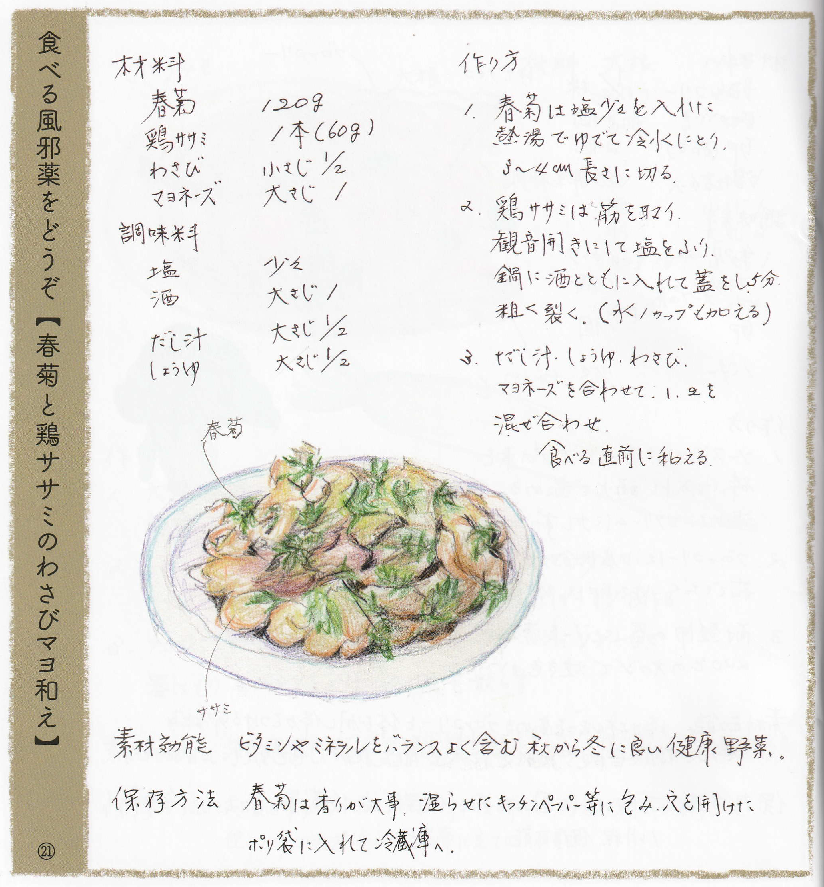 食べる風邪薬をどうぞ【春菊と鶏ササミのわさびマヨ和え】
㉑
材料
春菊 120g
鶏ササミ 1本(60g)
わさび 小さじ 1/2
マヨネーズ 大さじ 1
調味料
塩 少々
酒 大さじ 1
だし汁 大さじ 1/2
しょうゆ 大さじ 1/2
作り方
1. 春菊は塩少々を入れた
熱湯でゆでて冷水にとり、
3〜4cm長さに切る。
2. 鶏ササミは筋を取り、
観音開きにして塩をふり、
鍋に酒とともに入れて蓋をし、5分
粗く裂く。(水1カップも加える)
3. だし汁、しょうゆ、わさび、
マヨネーズを合わせて、1、2を
混ぜ合わせ、
食べる直前に和える。
春菊
ササミ
素材効能 ビタミンやミネラルをバランスよく含む秋から冬に良い健康野菜。
保存方法 春菊は香りが大事、湿らせたキッチンペーパー等に包み、穴を開けた
ポリ袋に入れて冷蔵庫へ。